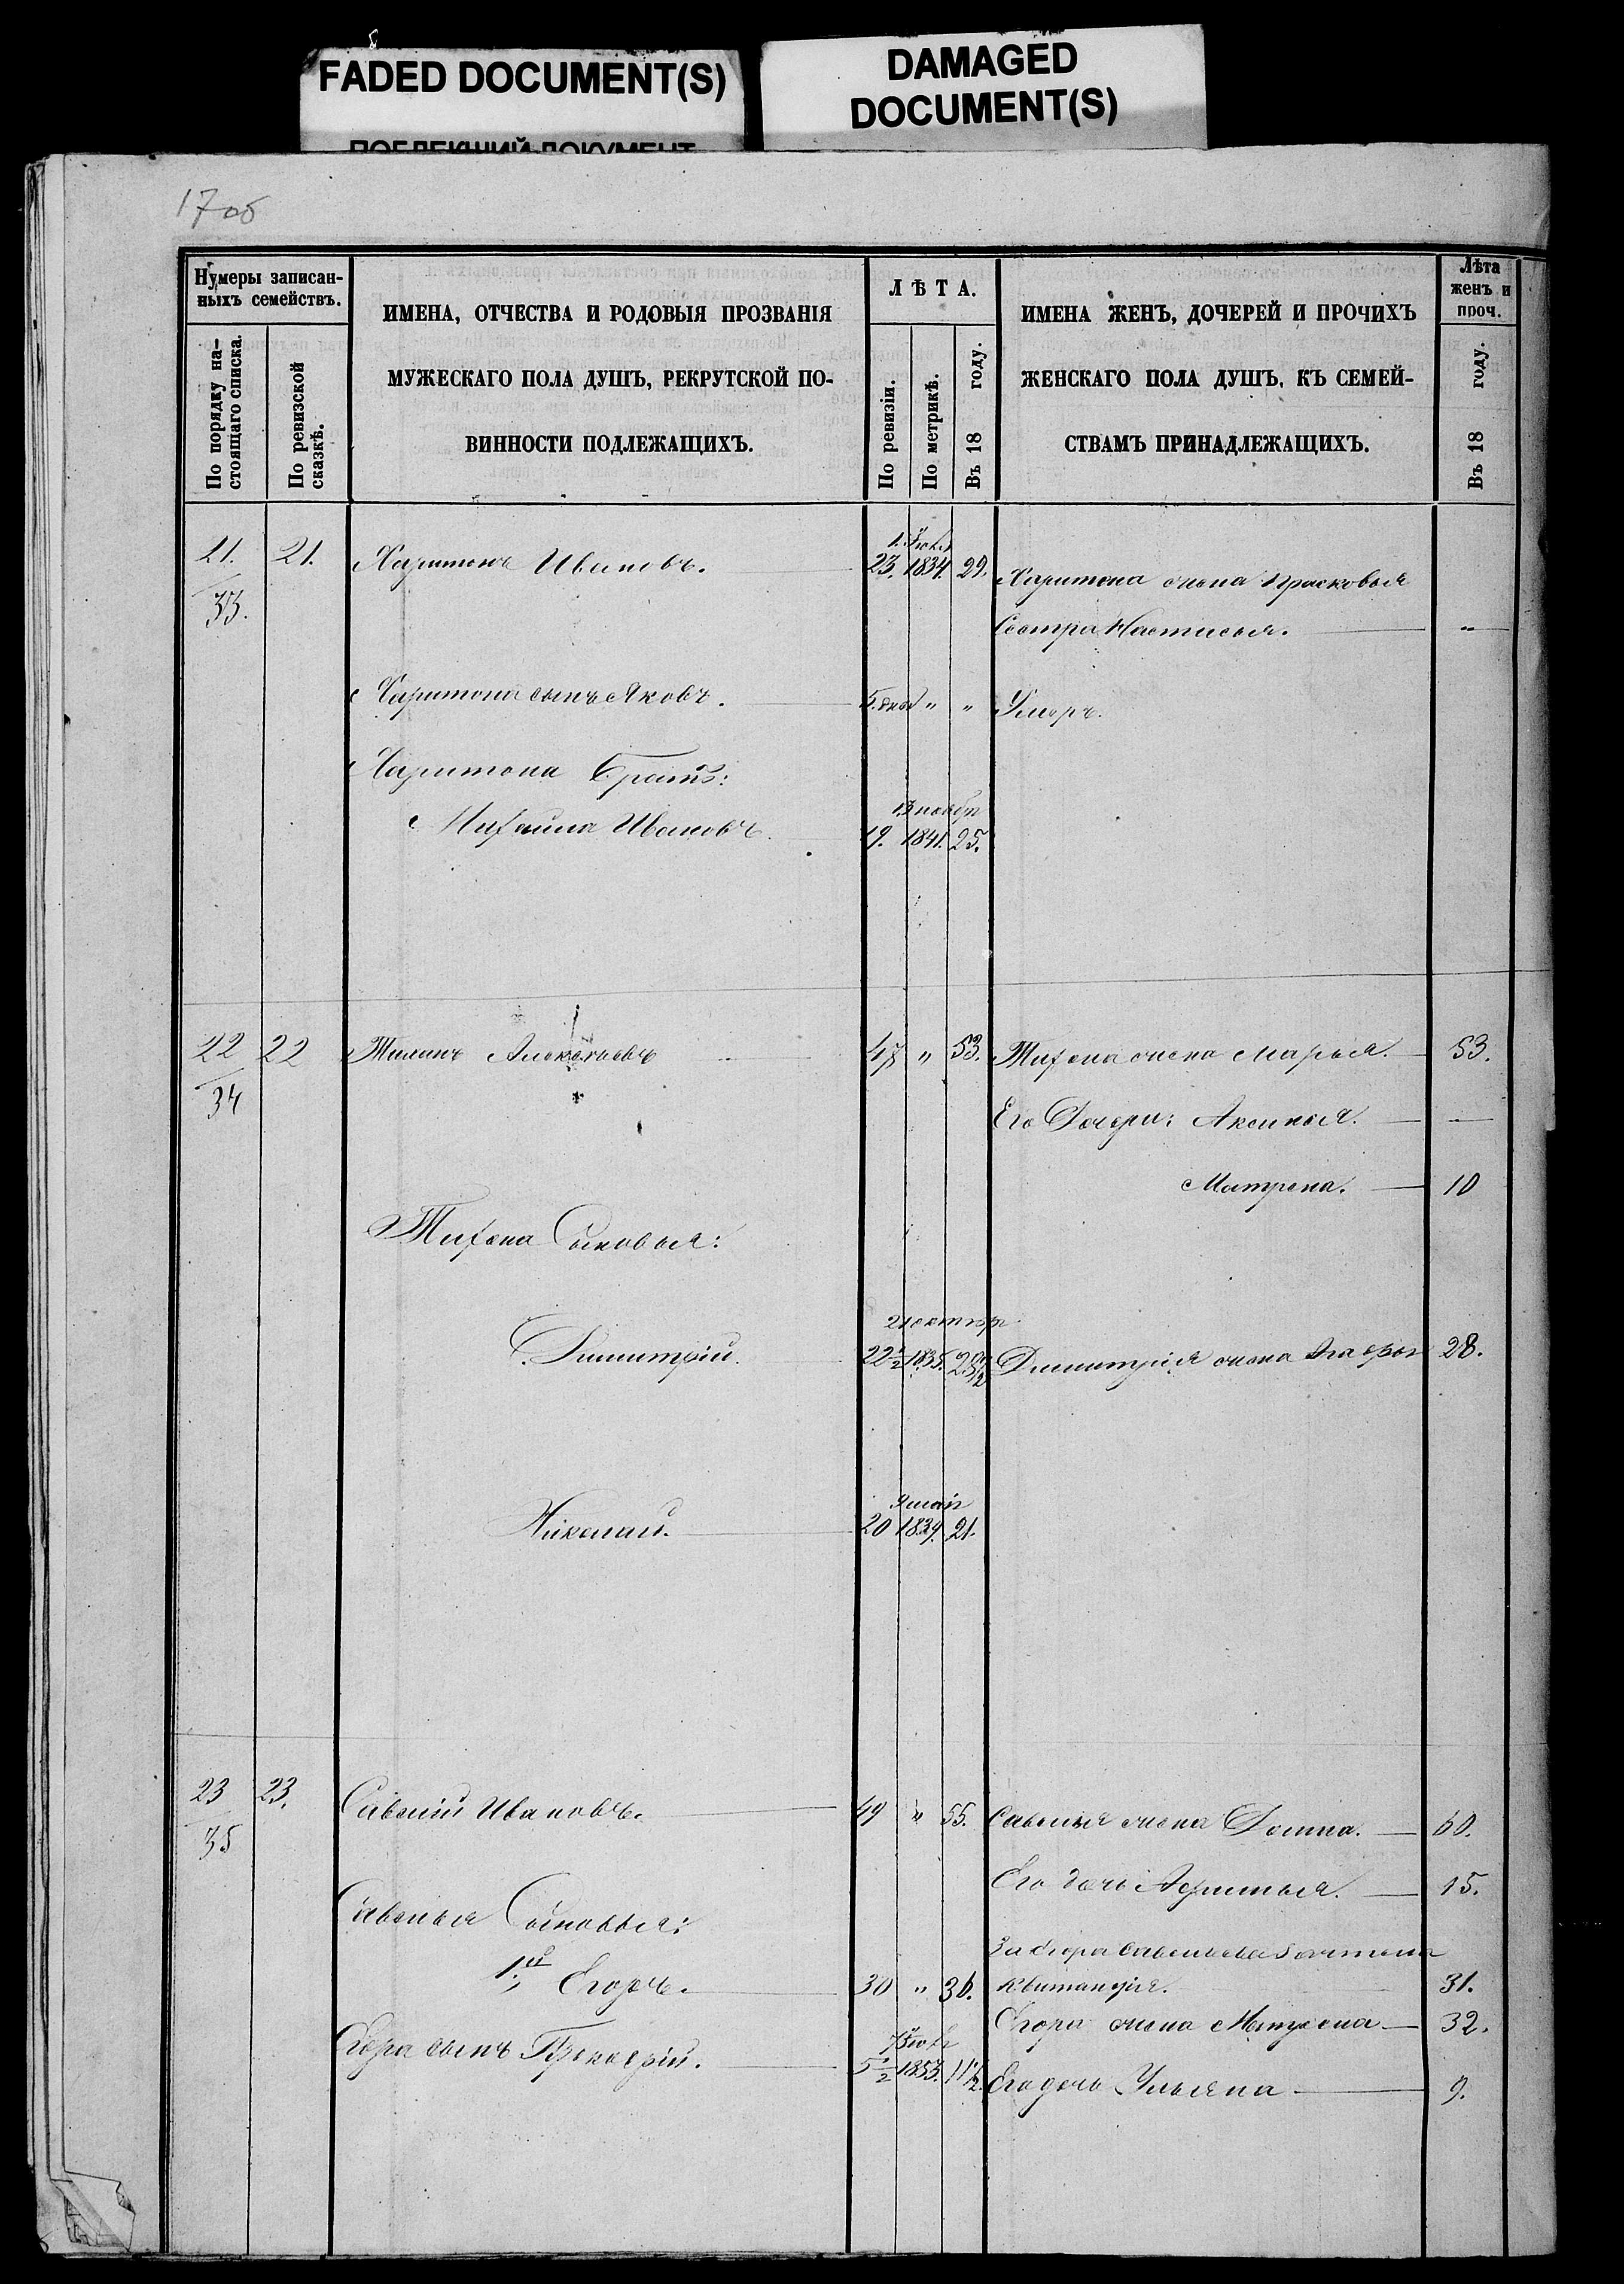 FADED DOCUMENT(S)
DAMAGED
DOCUMENT(S)
ПОБЛЕКШИЙ ДОКУМЕНТ
17об
Нумеры записан-
ныхъ семействъ.
По порядку на-
стоящаго списка.
По ревизской
сказкѣ.
ИМЕНА, ОТЧЕСТВА И РОДОВЫЯ ПРОЗВАНІЯ
МУЖЕСКАГО ПОЛА ДУШЪ, РЕКРУТСКОЙ ПО-
ВИННОСТИ ПОДЛЕЖАЩИХЪ.
ЛѢТА.
По ревизіи.
По метрикѣ.
Въ 18 году.
ИМЕНА ЖЕНЪ, ДОЧЕРЕЙ И ПРОЧИХЪ
ЖЕНСКАГО ПОЛА ДУШЪ, КЪ СЕМЕЙ-
СТВАМЪ ПРИНАДЛЕЖАЩИХЪ.
Лѣта
женъ и
проч.
Въ 18 году.
21. 21. Харитонъ Ивановъ. 23. 1834. 29. Харитона жена Прасковья
33.
Сестра Настасья. "
Харитона сынъ Яковъ. " " Умеръ.
Харитона Братъ:
13 ноябр
Михаила Ивановъ 19. 1841. 25.
22 22 Тихонъ Алексѣевъ 47 " 53. Тихона жена Марья. 53.
34
Его Дочери: Аксинья. —
Матрена. 10
Тихона Сыновья:
21 октябр
Димитрій. 22½ 1835. 28½ Димитрія жена 28.
9 мая
Николай. 20 1839. 21.
23 23. Савелій Ивановъ. 49 " 55. Савелья жена Домна. 60.
35
Его дочь 15.
Савелья Сыновья:
За Егора Савельева
1й Егоръ. 30 " 36. Квитанція. 31.
Егора жена Матрена 32.
Егора сынъ Прокофій. 5½ 1853. 11½. Его дочь Ульяна 9.